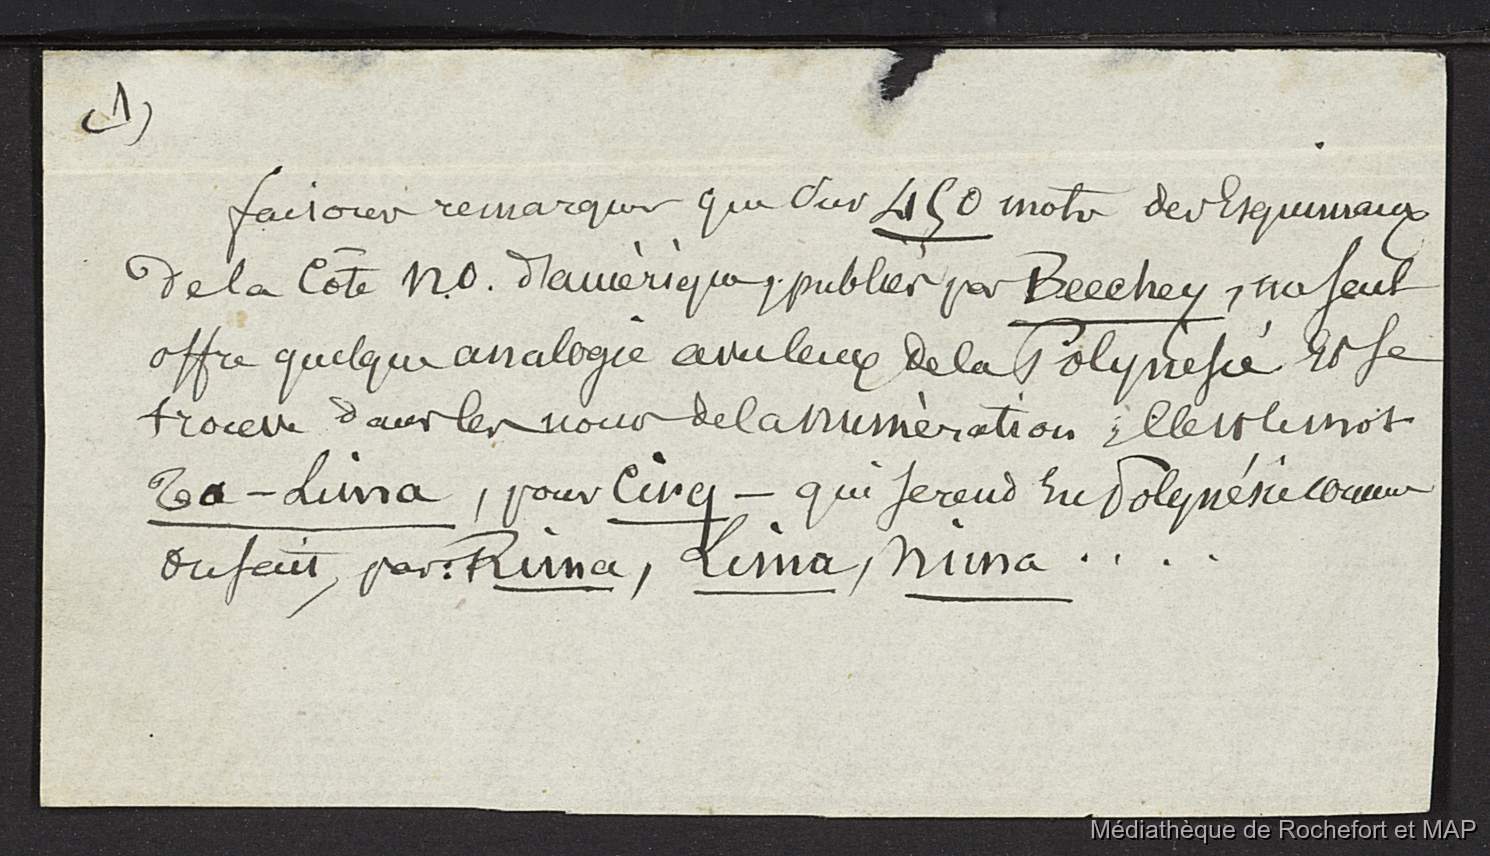 (1)
faisons remarquer que sur 450 mots des Esquimaux
de la Côte N.O. d'amèrique, publiés par Beechey, un seul
offre quelque analogie avec ceux de la Polynesie et se
trouve dans les noms de la numèration ; c'est le mot
Ta-Lima, pour Cinq - qui se rend En Polynésie comme
on sait, par: Rima, Lima, Nima . . . .
Médiathèque de Rochefort et MAP